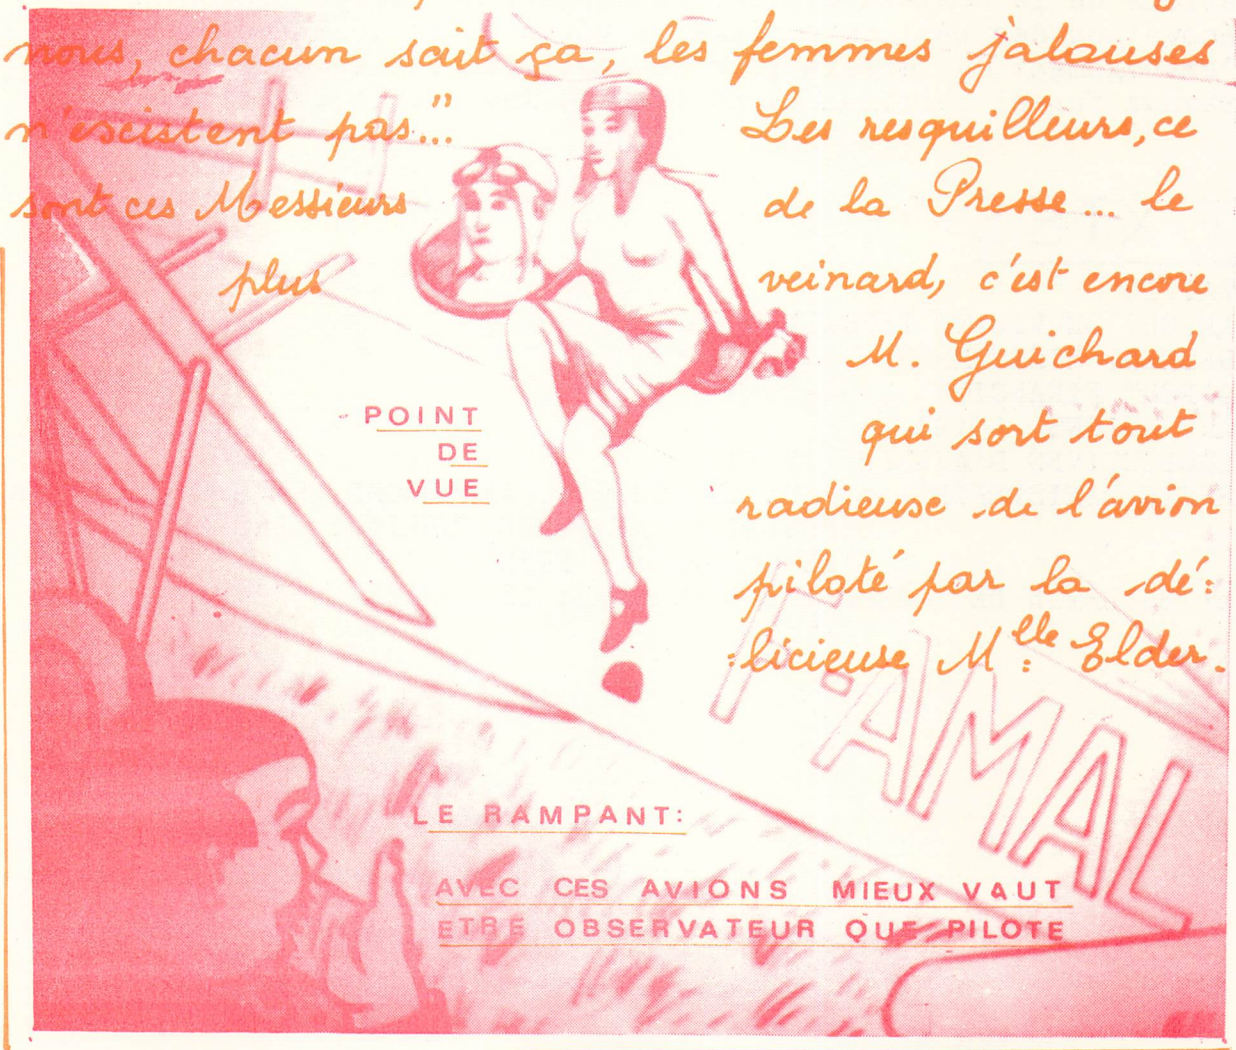 nous, chacun sait ça, les femmes jalouses
n'existent pas..." Les resquilleurs, ce
sont ces Messieurs de la Presse... le
plus veinard, c'est encore
M. Guichard
qui sort tout
radieuse de l'avion
piloté par la dé:
:licieuse M:lle Elder.
- POINT
DE
VUE
F-AMAL
LE RAMPANT:
AVEC CES AVIONS MIEUX VAUT
ETRE OBSERVATEUR QUE PILOTE